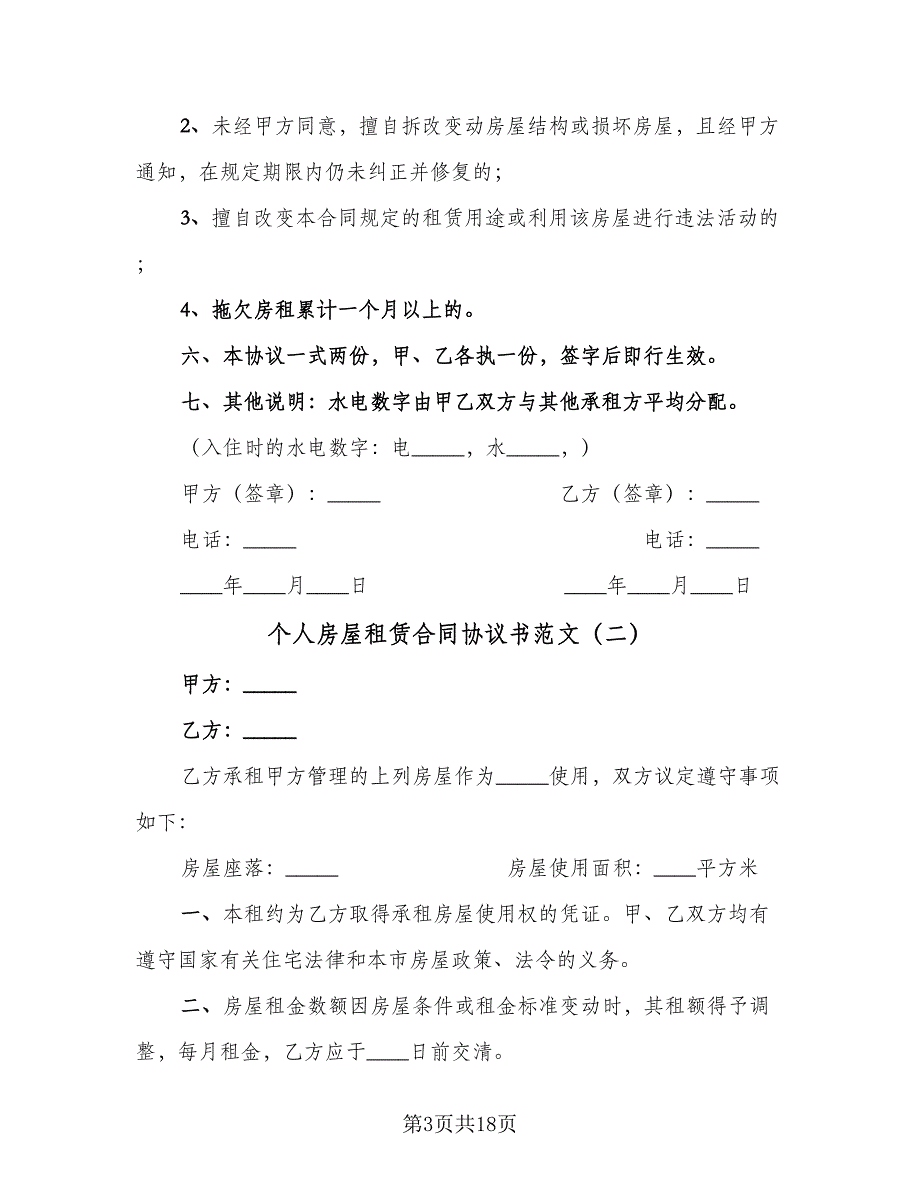 2、未经甲方同意，擅自拆改变动房屋结构或损坏房屋，且经甲方
通知，在规定期限内仍未纠正并修复的；
3、擅自改变本合同规定的租赁用途或利用该房屋进行违法活动的
；
4、拖欠房租累计一个月以上的。
六、本协议一式两份，甲、乙各执一份，签字后即行生效。
七、其他说明：水电数字由甲乙双方与其他承租方平均分配。
（入住时的水电数字：电_____，水_____，）
甲方（签章）：_____ 乙方（签章）：_____
电话：_____ 电话：_____
____年____月____日 ____年____月____日
个人房屋租赁合同协议书范文（二）
甲方：_____
乙方：_____
乙方承租甲方管理的上列房屋作为_____使用，双方议定遵守事项
如下：
房屋座落：_____ 房屋使用面积：____平方米
一、本租约为乙方取得承租房屋使用权的凭证。甲、乙双方均有
遵守国家有关住宅法律和本市房屋政策、法令的义务。
二、房屋租金数额因房屋条件或租金标准变动时，其租额得予调
整，每月租金，乙方应于____日前交清。
第3页共18页